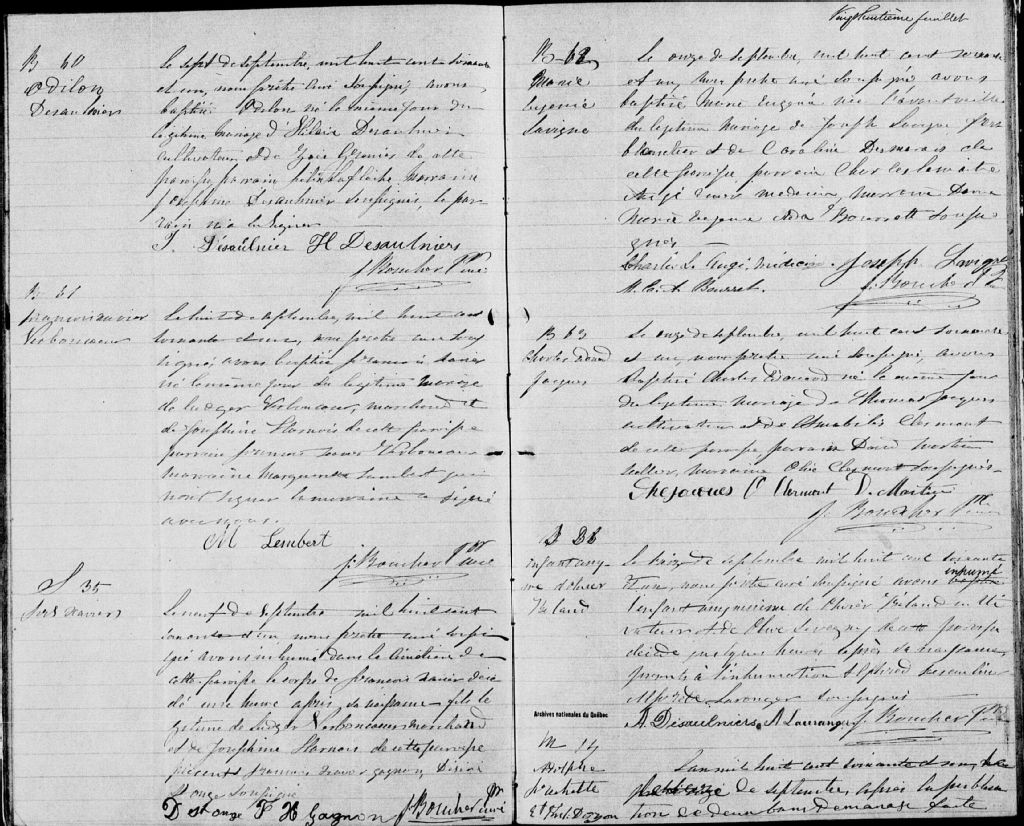 B 60
Odilon
Desaulniers
Le sept de septembre, mil huit cent soixante
et un, nous prêtre curé soussigné, avons
baptisé Odilon né le même jour du
légitime mariage d'Hilaire Desaulniers
cultivateur et de Grenier de cette
paroisse, parrain Lafleche marraine
Josephine Desaulnier soussignés, le par
rain n'a su signer
J. Désaulnier H Desaulniers
J. Boucher Ptre curé
B 61
François Xavier
Verboncoeur
Le huit de septembre, mil huit cent
soixante et un, nous prêtre curé sous
signé, avons baptisé François Xavier
né le même jour du légitime mariage
de Ludger Verboncoeur, marchand et
de Josephine Harnois de cette paroisse
parrain François Xavier Verboncoeur
marraine Marguerite Lambert qui
n'ont signer la marraine a signé
avec nous.
M Lembert
J. Boucher Ptre curé
S 35
Frs Xavier
Le neuf de septembre mil huit cent
soixante et un nous prêtre curé soussi
gné avons inhumé dans le cimétière de
cette paroisse le corps de François Xavier décé
dé une heure après sa naissance fils lé
gitime de Ludger Verboncoeur marchand
et de Josephine Harnois de cette paroisse
présents François Xavier Gagnon, Désiré
St onge Soussignés
D St onge F H Gagnon J. Boucher Ptre curé
Vingt huitième feuillet
B 62
Marie
Eugenie
Lavigne
Le onze de septembre, mil huit cent soixante
et un, nous prêtre curé soussigné avons
baptisé Marie Eugénie née l'avant veille
du légitime mariage de Joseph Lavigne ferr
blanctier et de Caroline Desmarais de
cette paroisse parrain Charles Lemaitre
Augé medecin, marraine Dame
Marie Bourrett soussi
gnés
Charles L. Augé, Médecin. Joseph Lavigne
J. Boucher Ptre
B 63
Charles Edouard
Jacques
Le onze de septembre, mil huit cent soixante
et un, nous prêtre curé soussigné, avons
baptisé Charles Edouard né le même jour
du légitime mariage de Thomas Jacques
cultivateur et de Amabilis Clermont
de cette paroisse parrain David Martin
marraine Olive Clermont soussignés.
Ths Jacques O Clermont D. Martin
J. Boucher Ptre
S 36
infant anony
me d'Olivier
Beland
Le de septembre mil huit cent soixante
et un, nous prêtre curé soussigné avons inhumé
l'enfant anonyme de Olivier Béland culti
vateur et de Olive de cette paroisse
décédé quelques heures après sa naissance
présents à l'inhumation Alfred Desaulniers
soussignés
A. Désaulniers A Lauranger J. Boucher Ptre
Archives nationales du Québec
M 14
Adolphe
Frechette
L'an mil huit cent soixante et un, le
de septembre, après la publica
tion de deux bans de mariage faite